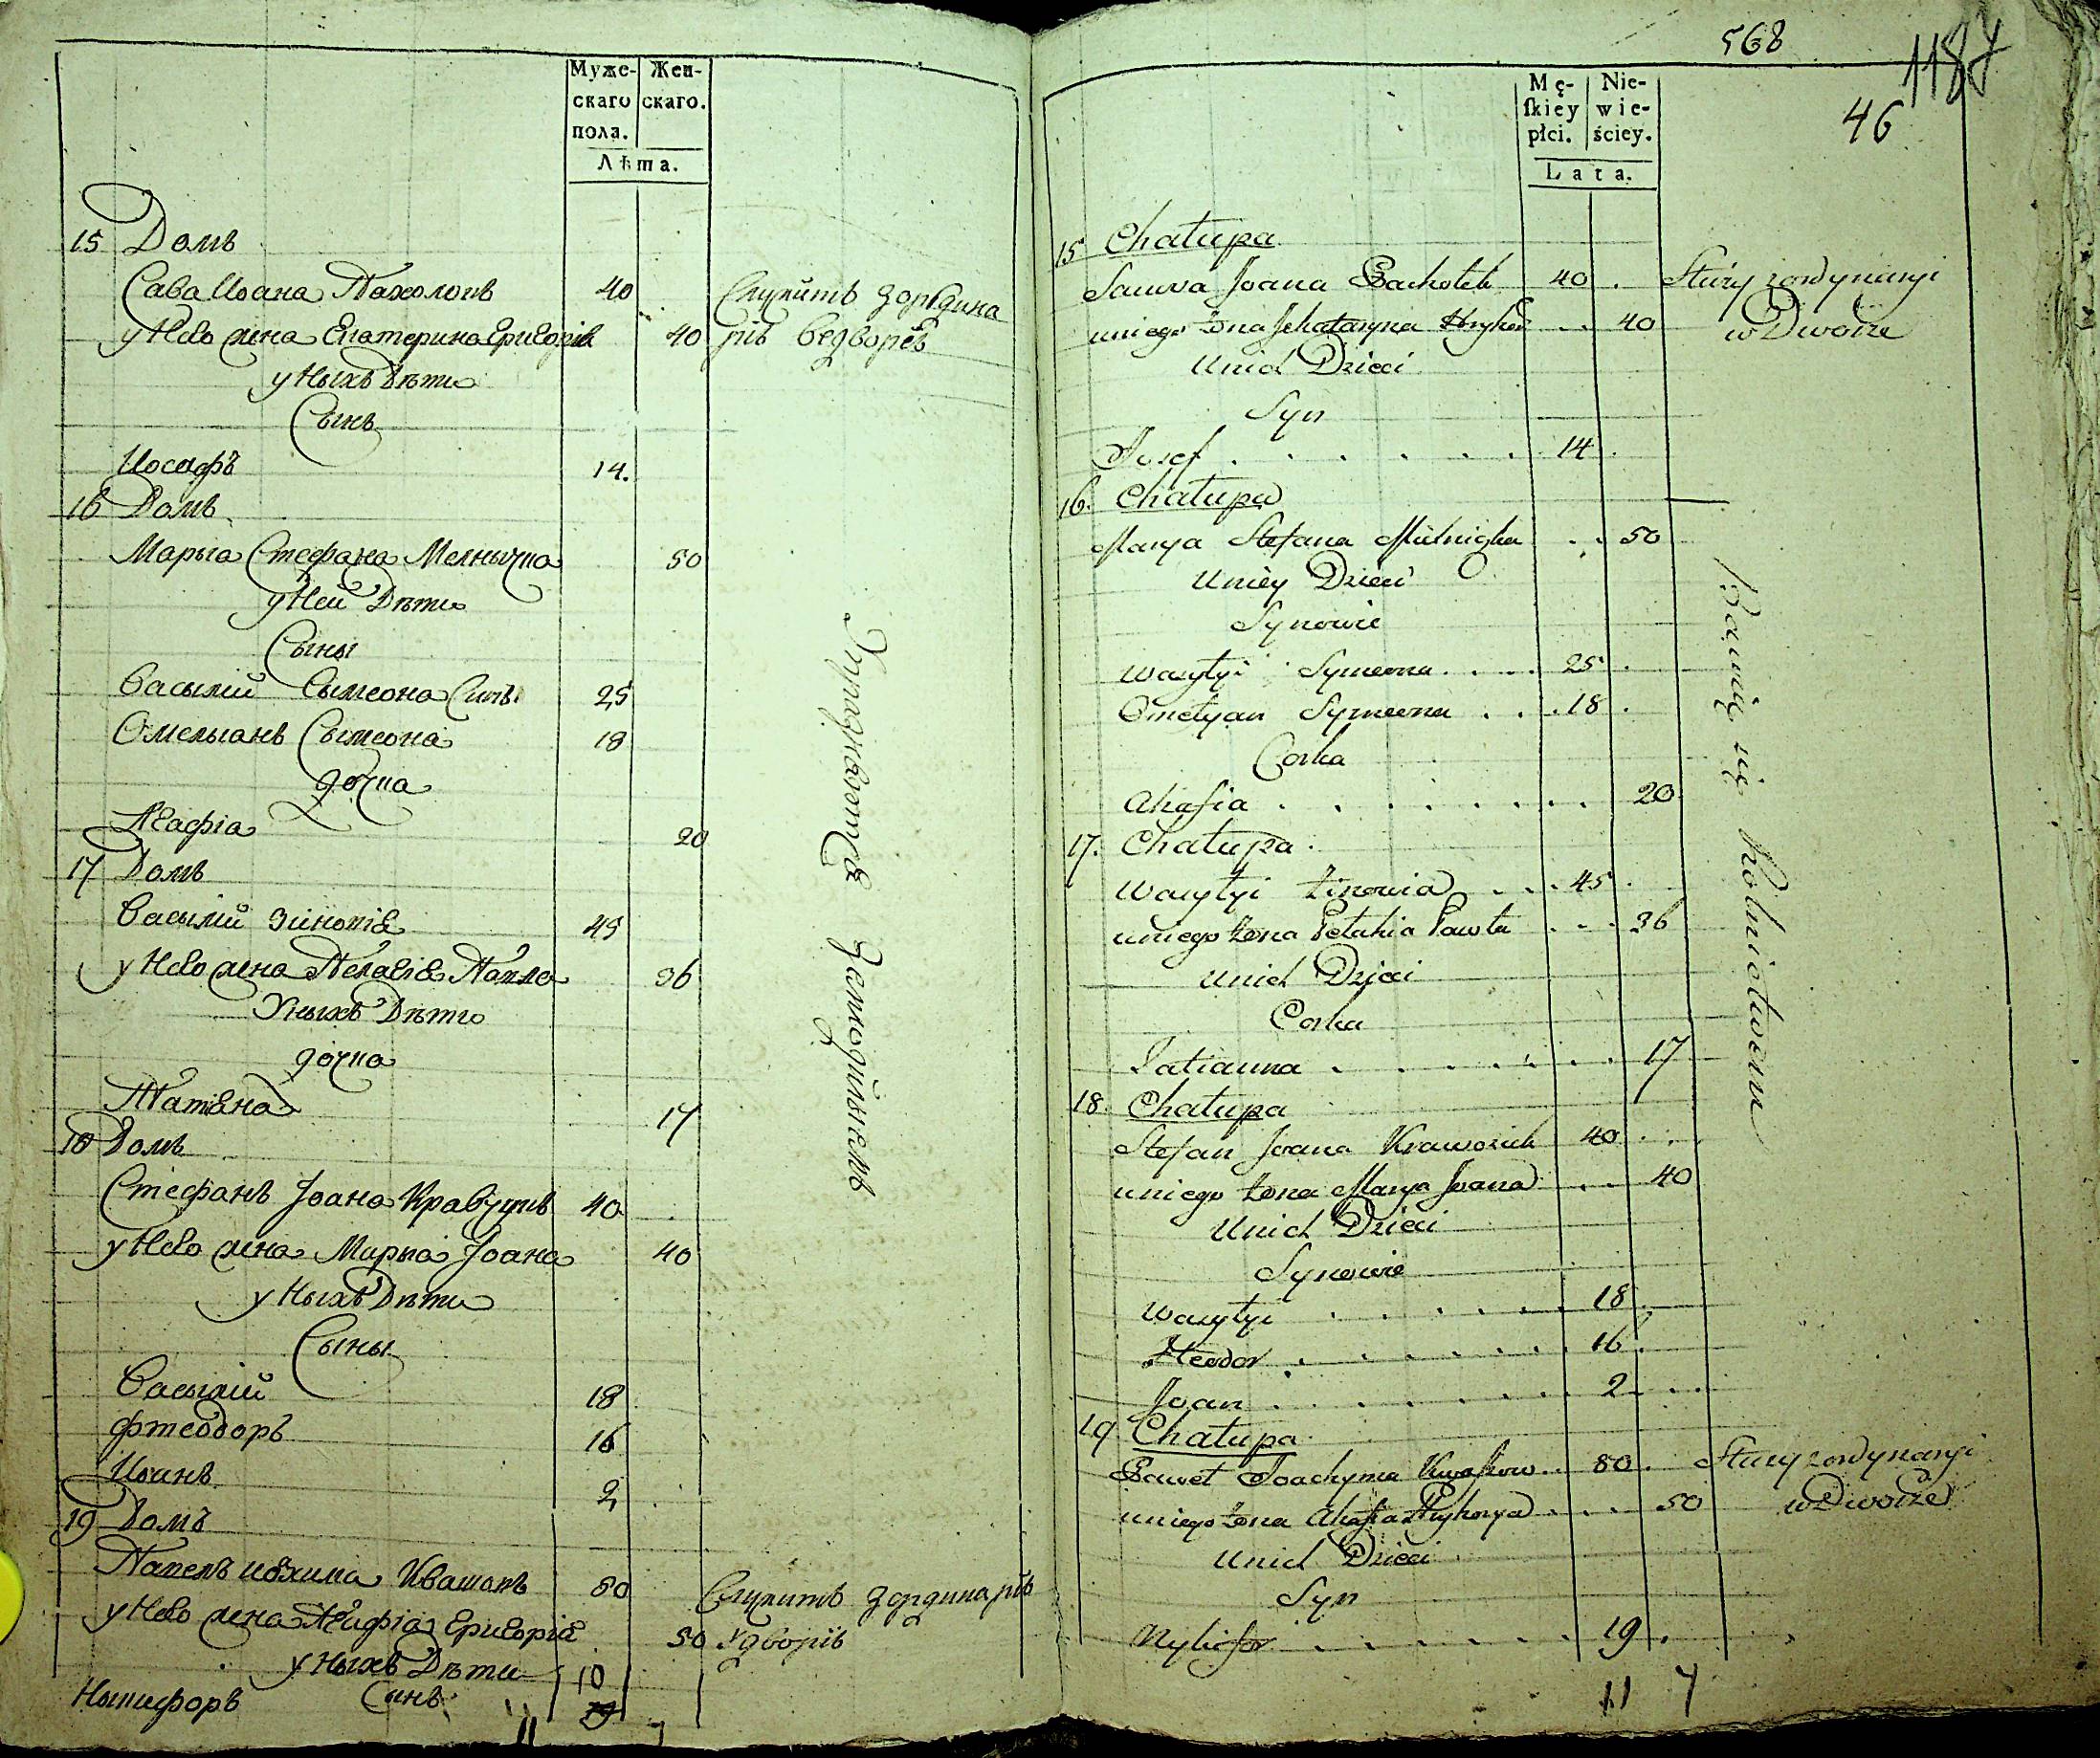 Муже-
скаго
пола.
Жен-
скаго.
Лѣта.
15 Домъ
Сава Иоана Пахолокъ 40 Служитъ зордина
у Него жена Екатерина Григорія 40 рїѣ
у Ныхъ Дѣти
Сынъ
Иосафъ 14.
16 Домъ
Марыа Стефана Мелнычка 50
у Ней Дѣти
Сыны
Васылій Сымеона 25
Омелыанъ Сымеона 18
дочка
Агафіа 20
17 Домъ
Васылій Зіновіѣ 45
у Него жена Пелагіѣ Павла 36
Уныхъ Дѣти
дочка
Татѣна 17
18 Домъ
Стефанъ Јоана Кравчукъ 40
у Него жена Марыа Јоана 40
у Ныхъ Дѣти
Сыны
Васылій 18
Фтеодоръ 16
Иоанъ 2
19 Домъ
Павелъ Иоахима 80 Служитъ зординарїѣ
у Него жена Агафіа Григоріѣ 50 Удворїѣ
у Ныхъ Дѣти 10
Ныкифоръ Сынъ
11 7
568
1187
46
Mę-
ſkiey
płci.
Nie-
wie-
ściey.
Lata.
15 Chałupa
Sawa Joana Pacholik 40 Służy zordynaryi
uniego żona Jekataryna Hryhor 40 w Dworze
Unich Dzieci
Syn
Josef 14
16. Chałupa
Marya Stefana Mielniczka 50
Uniey Dzieci
Synowie
Wasylyi Symeona 25
Omelyan Symeona 18
Corka
Ahafia 20
17. Chałupa
Wasylyi Zinowia 45
uniego żona Pelahia Pawła 36
Unich Dzieci
Corka
Tatianna 17
18 Chałupa
Stefan Joana Krawczuk 40
uniego żona Marya Joana 40
Unich Dzieci
Synowie
Wasylyi 18
Fteodor 16
Joan 2
19 Chałupa
Paweł Joachyma 80 Służy zordynaryi
uniego żona Ahafia Hryhorya 50 w Dworze
Unich Dzieci
Syn
Nykifor 19
11 7
Bawią się Rolnictwem